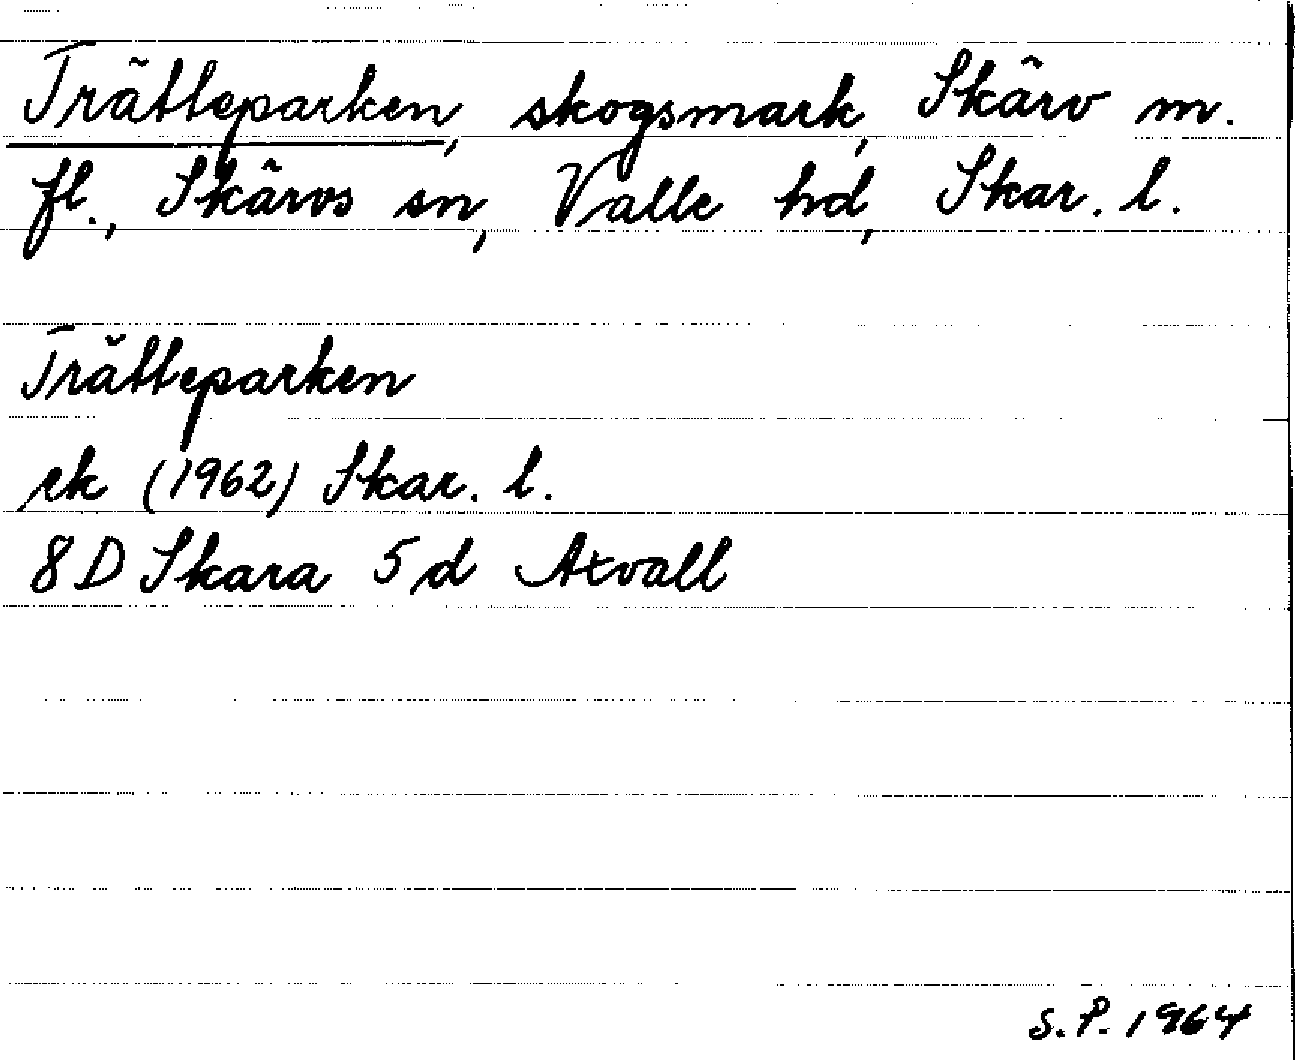 Trätteparken, skogsmark, Skärv m.
fl., Skärvs sn, Valle hd, Skar. l.
Trätteparken
ek (1962) Skar. l.
8D Skara 5d Axvall
S.P. 1964